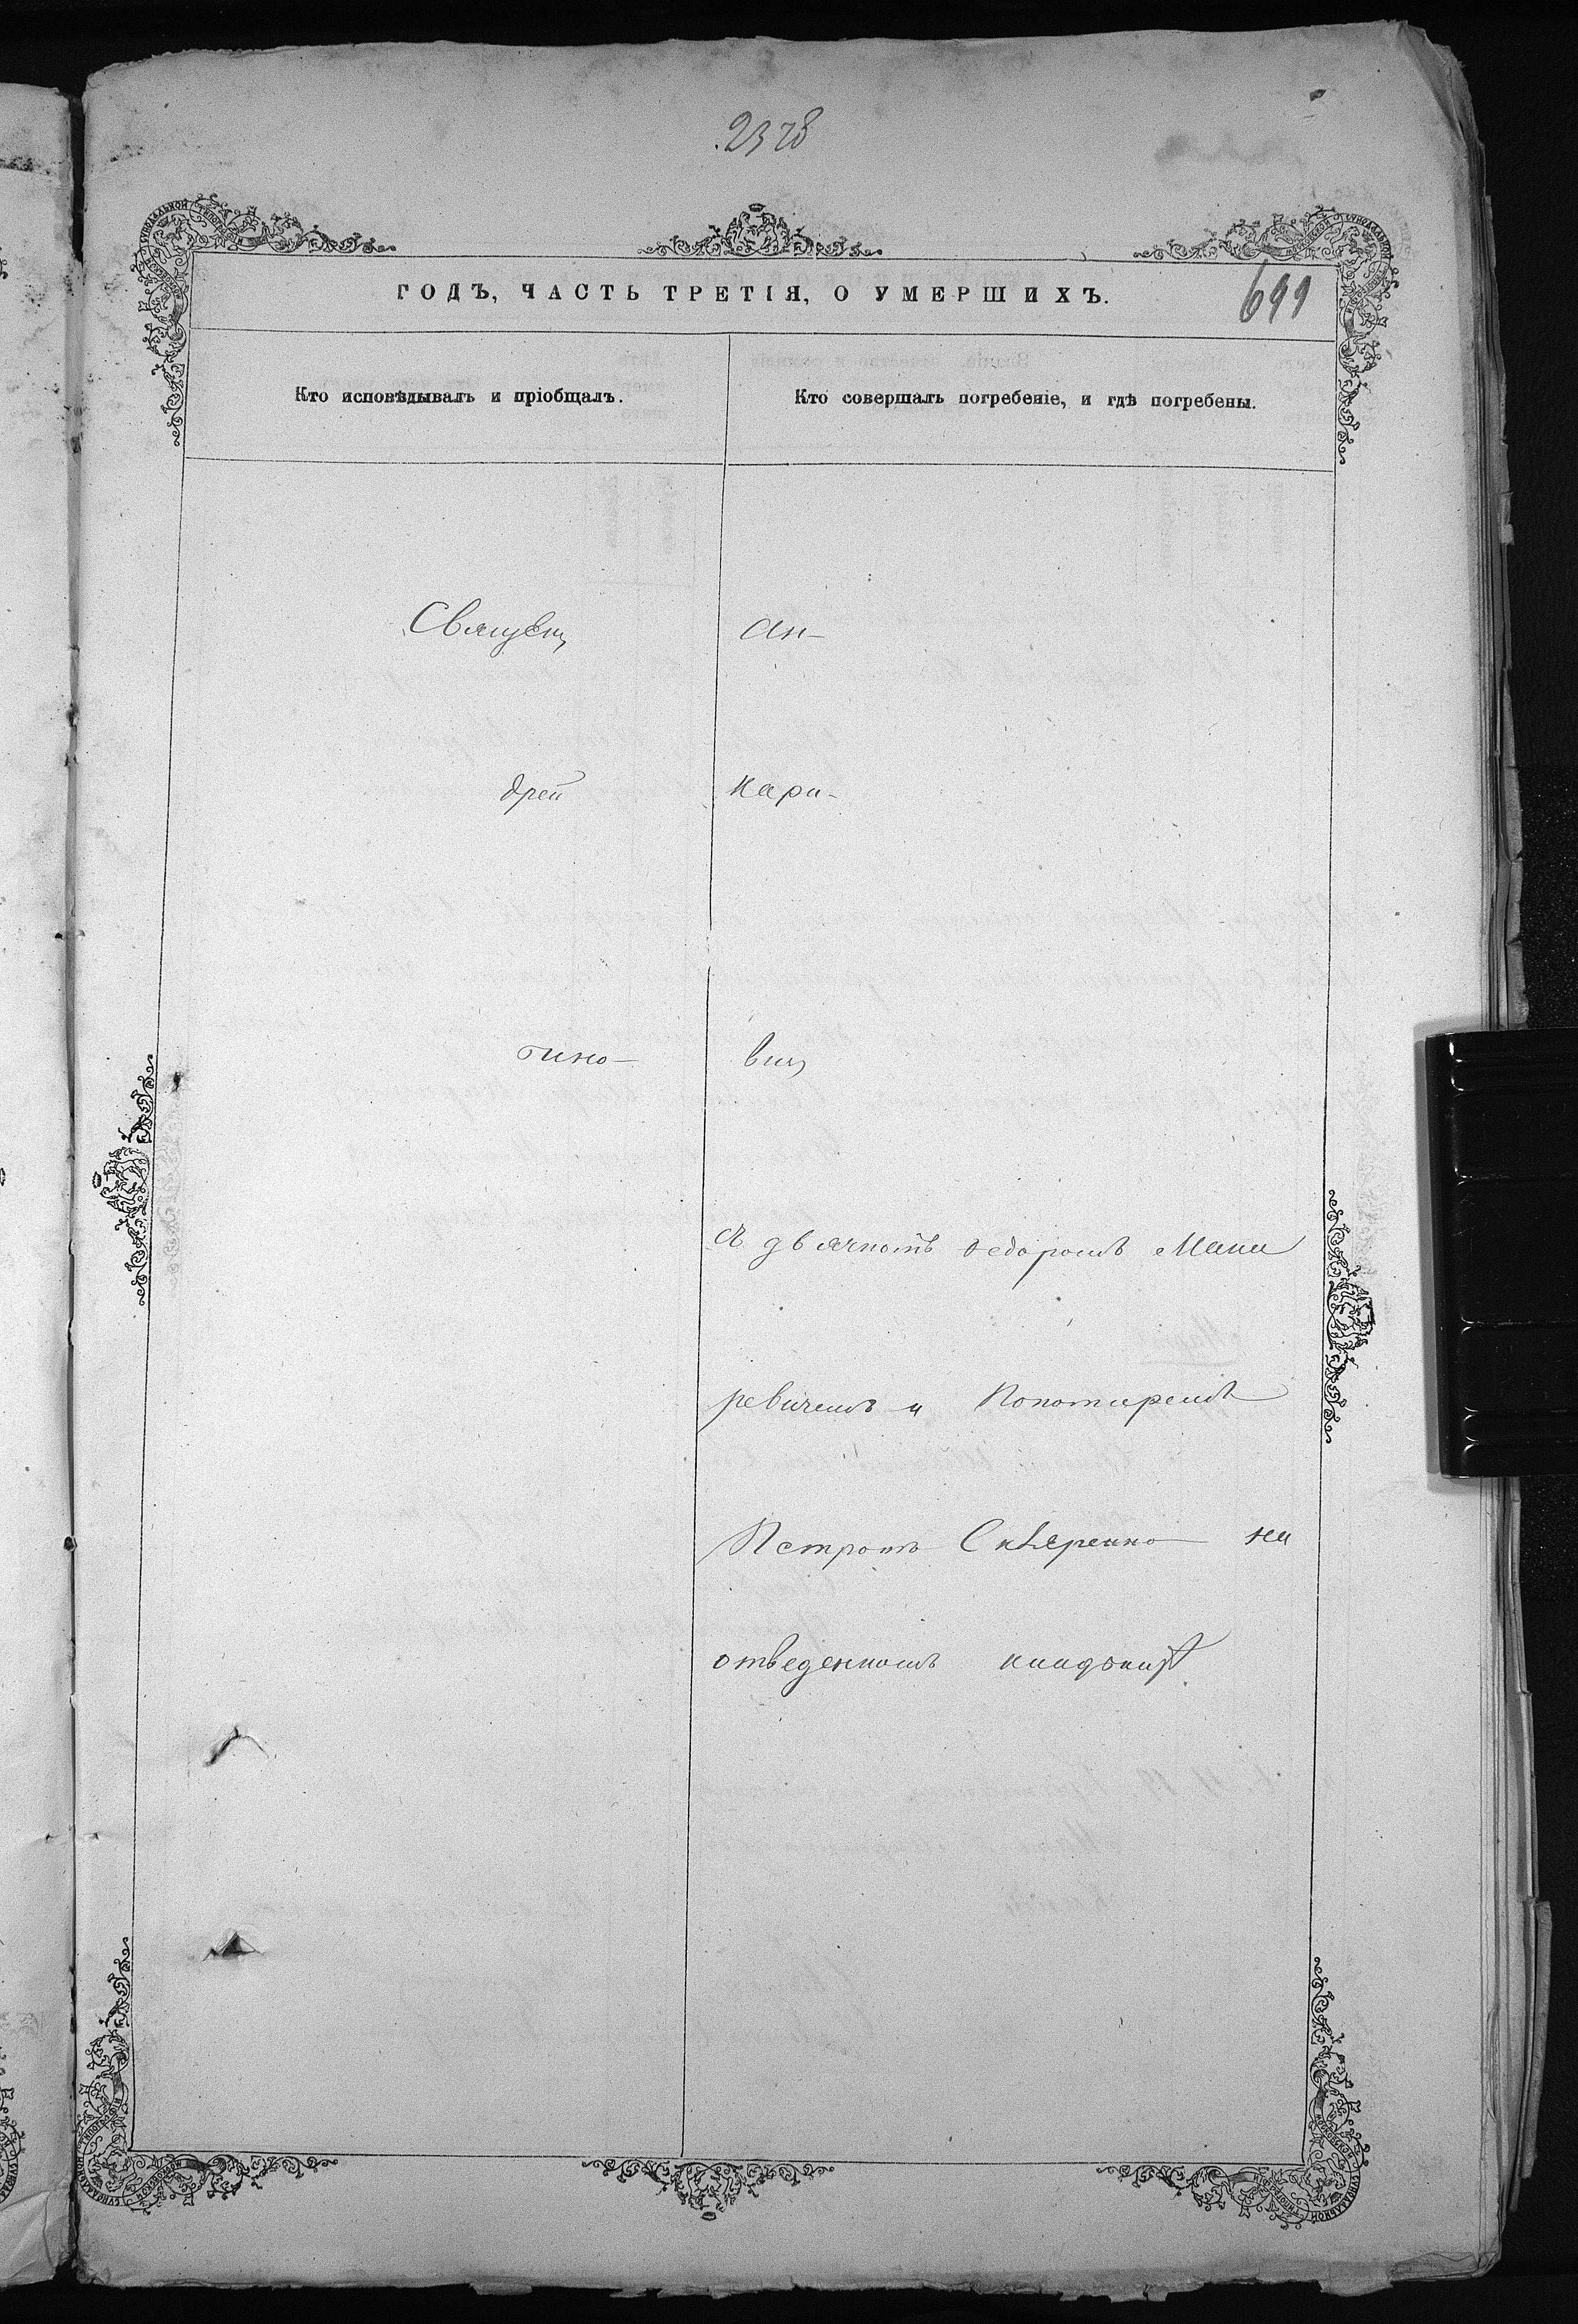 2378
ГОДЪ, ЧАСТЬ ТРЕТІЯ, О УМЕРШИХЪ.
699
Кто исповѣдывалъ и пріобщалъ.
Кто совершалъ погребеніе, и гдѣ погребены.
Священ Ан-
дрей Кари-
оино- вичъ
съ дьячкомъ Ѳедоромъ Мака
ревичемъ и Понамаремъ
Петромъ Скляренко на
отведенномъ кладбищѣ.